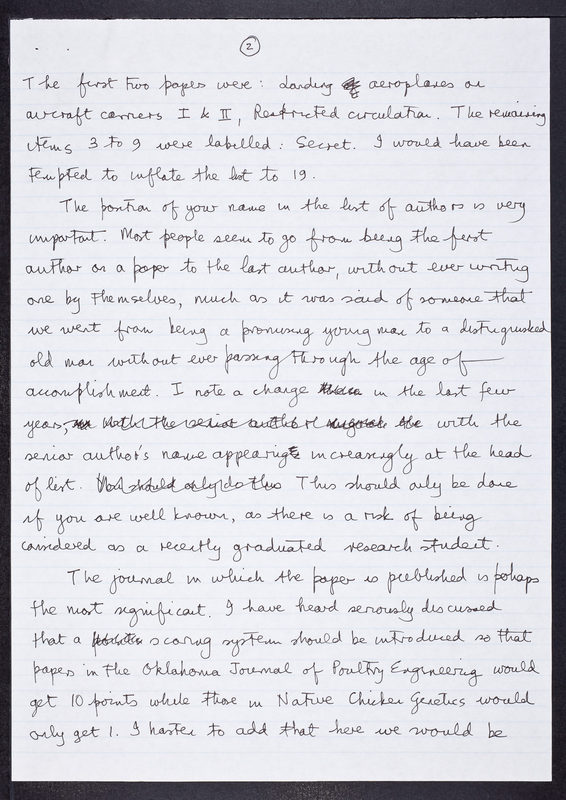 2
The first two papers were: Landing aeroplanes on
aircraft carriers I & II, Restricted circulation. The remaining
items 3 to 9 were labelled: Secret. I would have been
tempted to inflate the list to 19.
The position of your name in the list of authors is very
important. Most people seem to go from being the first
author on a paper to the last author, without ever writing
one by themselves, much as it was said of someone that
we went from being a promising young man to a distinguished
old man without ever passing through the age of
accomplishment. I note a change in the last few
years, with the senior author with the
senior author's name appearing increasingly at the head
of list. You should only do this This should only be done
if you are well known, as there is a risk of being
considered as a recently graduated research student.
The journal in which the paper is published is perhaps
the most significant. I have heard seriously discussed
that a scoring system should be introduced so that
papers in the Oklahoma Journal of Poultry Engineering would
get 10 points while those in Native Chicken Genetics would
only get 1. I hasten to add that here we would be